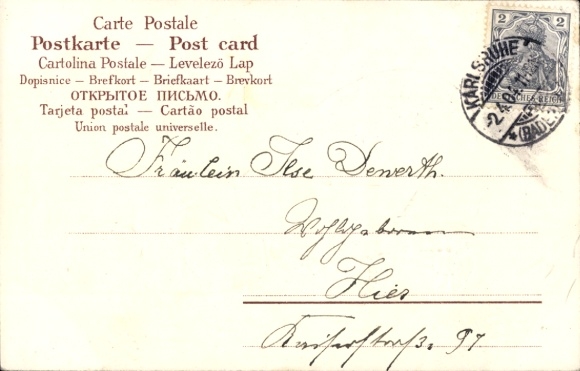 Carte Postale
Postkarte — Post card
Cartolina Postale — Levelező Lap
Dopisnice — Brefkort — Briefkaart — Brevkort
ОТКРЫТОЕ ПИСЬМО.
Tarjeta postal — Cartão postal
Union postale universelle.
2 2
DEUTSCHES REICH
KARLSRUHE
2.4.04.
(BADEN)
Fräulein Ilse Dewerth.
Wohlgeboren
Hier
Kaiserstraß. 97